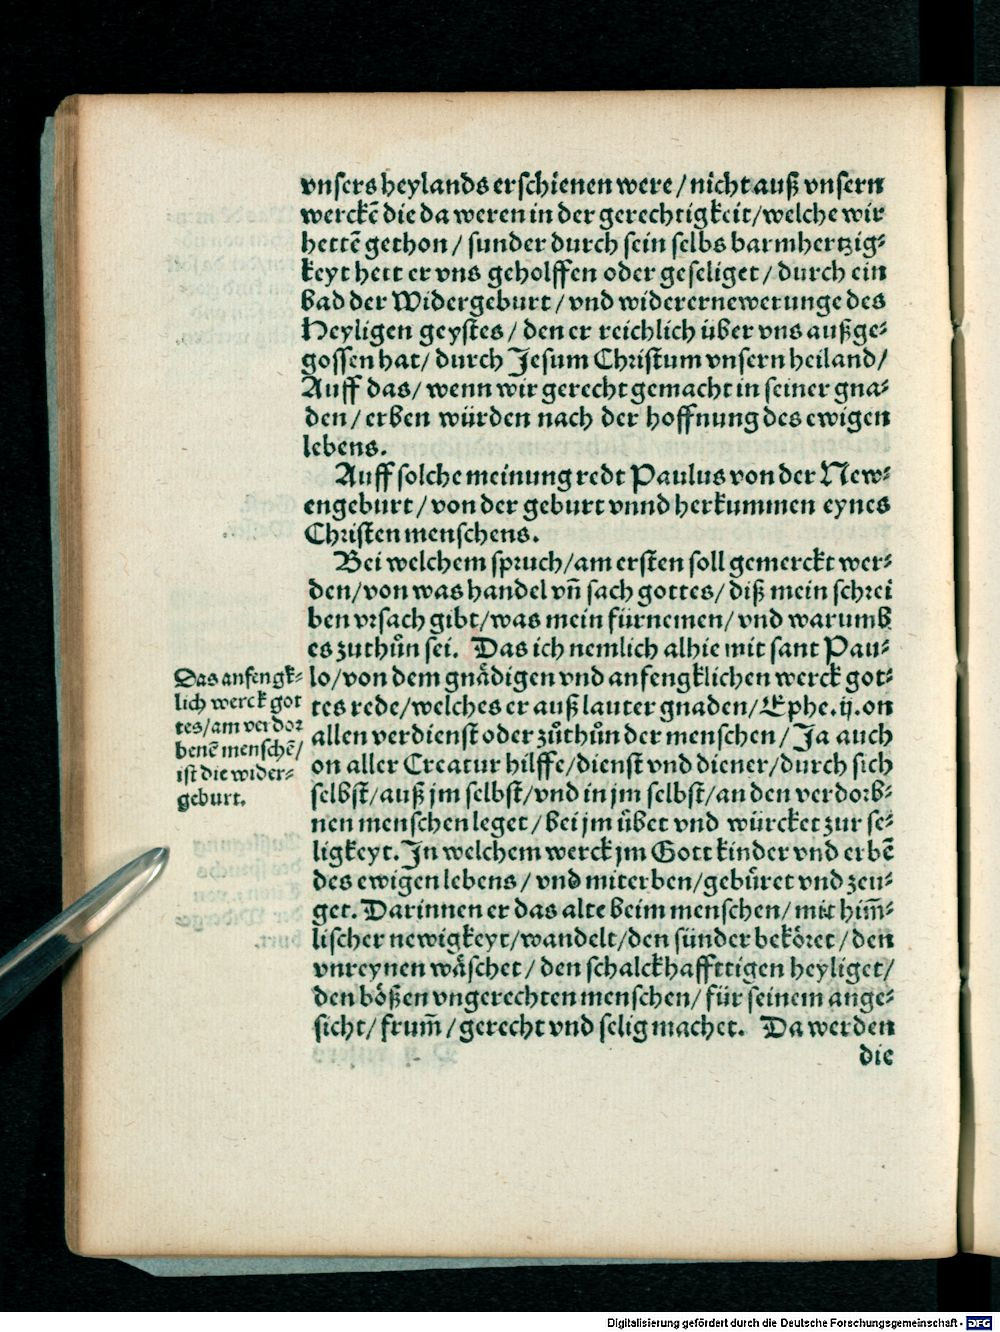 vnsers heylands erschienen were / nicht auß vnsern
werckẽ die da weren in der gerechtigkeit / welche wir
hettẽ gethon / sunder durch sein selbs barmhertzig⸗
keyt hett er vns geholffen oder geseliget / durch ein
bad der Widergeburt / vnd widerernewerunge des
Heyligen geystes / den er reichlich über vns außge⸗
gossen hat / durch Jesum Christum vnsern heiland /
Auff das / wenn wir gerecht gemacht in seiner gna⸗
den / erben würden nach der hoffnung des ewigen
lebens.
Auff solche meinung redt Paulus von der New⸗
engeburt / von der geburt vnnd herkummen eynes
Christen menschens.
Bei welchem spruch / am ersten soll gemerckt wer⸗
den / von was handel vñ sach gottes / diß mein schrei
ben vrsach gibt / was mein fürnemen / vnd warumb
es zuthůn sei. Das ich nemlich alhie mit sant Pau⸗
lo / von dem gnädigen vnd anfengklichen werck got⸗
tes rede / welches er auß lauter gnaden / Ephe. ij. on
allen verdienst oder zůthůn der menschen / Ja auch
on aller Creatur hilffe / dienst vnd diener / durch sich
selbst / auß jm selbst / vnd in jm selbst / an den verdorb⸗
nen menschen leget / bei jm übet vnd würcket zur se⸗
ligkeyt. In welchem werck jm Gott kinder vnd erbẽ
des ewigen lebens / vnd miterben / gebüret vnd zeu⸗
get. Darinnen er das alte beim menschen / mit him̃⸗
lischer newigkeyt / wandelt / den sünder bekôret / den
vnreynen wäschet / den schalckhaffttigen heyliget /
den bößen vngerechten menschen / für seinem ange⸗
sicht / frum̃ / gerecht vnd selig machet. Da werden
die
Das anfengk⸗
lich werck got
tes / am verdor
benẽ menschẽ /
ist die wider⸗
geburt.
Digitalisierung gefördert durch die Deutsche Forschungsgemeinschaft - DFG